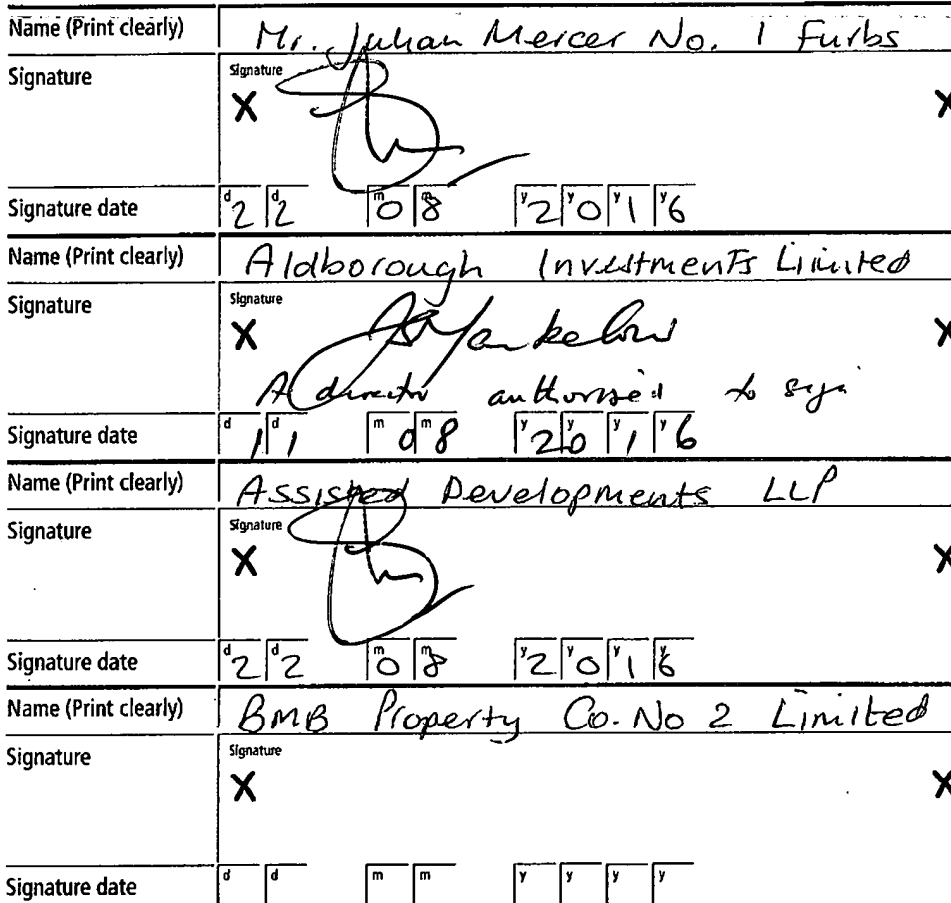 Name (Print clearly) Mr. Julian Mercer No. 1 Furbs
Signature Signature
X X
Signature date d2 d2 m0 m8 y2 y0 y1 y6
Name (Print clearly) Aldborough Investments Limited
Signature Signature
X X
A director authorised to sign
Signature date d1 d1 m0 m8 y2 y0 y1 y6
Name (Print clearly) Assisted Developments LLP
Signature Signature
X X
Signature date d2 d2 m0 m8 y2 y0 y1 y6
Name (Print clearly) BMB Property Co. No 2 Limited
Signature Signature
X X
Signature date d d m m y y y y